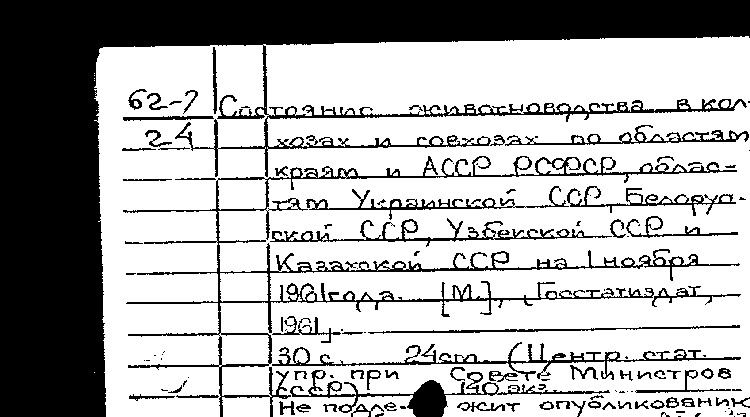 62-7 Состояние животноводства в кол-
24 хозах и совхозах по областям,
краям и АССР РСФСР, облас-
тям Украинской ССР, Белорус-
ской ССР, Узбекской ССР и
Казахской ССР на 1 ноября
1961 года. [М.], Госстатиздат,
1961.
30 с. 24см. (Центр. стат.
упр. при Совете Министров
СССР) 140 экз.
Не подле- жит опубликованию